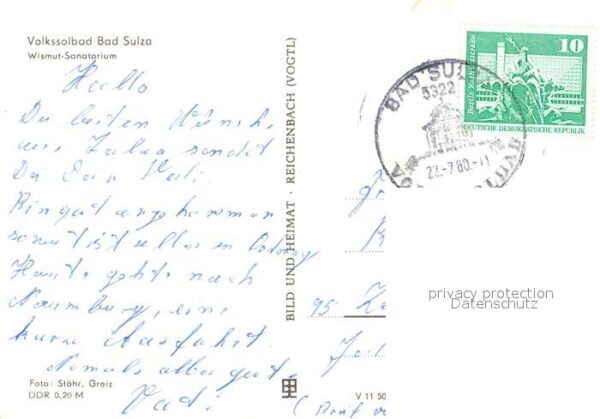 Volkssolbad Bad Sulza
Wismut-Sanatorium
Hallo
Die besten Wünsche
aus Sulza sendet
Dir Dein Vati.
Bin gut angekommen
sonst ist alles in Ordnung
Heute gehts nach
Naumburg, eine
kurze Ausfahrt.
Nomals alles gute.
Vati
Foto: Stöhr, Greiz
DDR 0,20 M
BILD UND HEIMAT · REICHENBACH (VOGTL)
V 11 50
BAD SULZ
5322
22.-7.80.-11
10
Berlin Rathausstraße
DEUTSCHE DEMOKRATISCHE REPUBLIK
95
privacy protection
Datenschutz